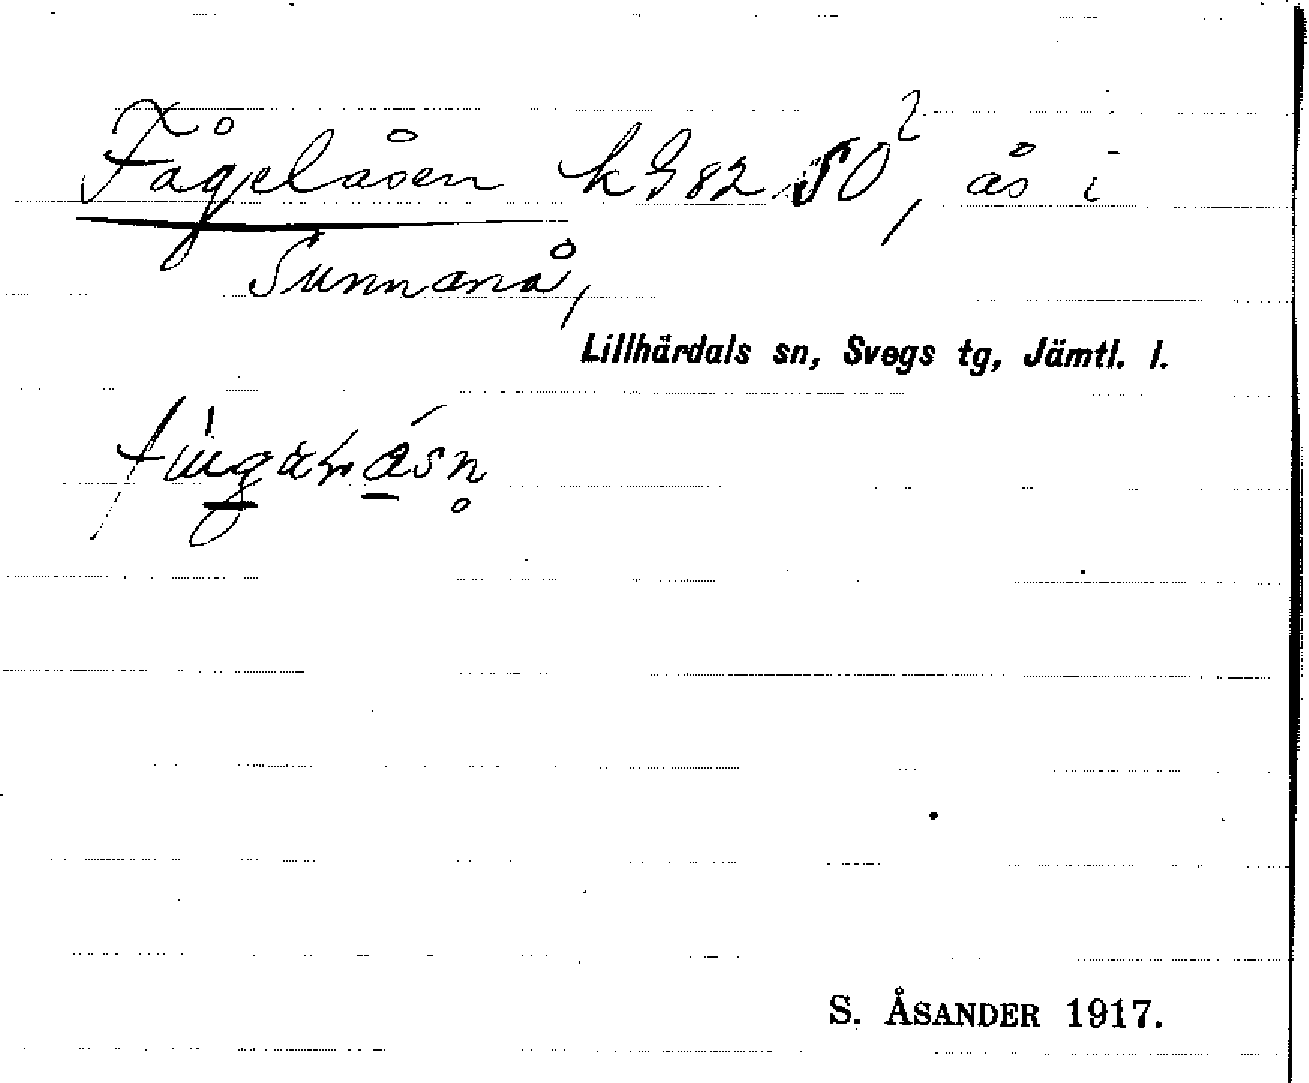 Fågelåsen kg 82 SO², ås i
Sunnanå,
Lillhärdals sn, Svegs tg, Jämtl. l.
S. ÅSANDER 1917.